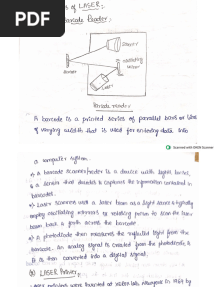 PDF
of LASER:
Barcode Reader:
Sensor
Scanner
Rotating
Mirror
Laser
Barcode reader
A barcode is a printed series of parallel bars or lines
of varying width that is used for entering data into
Scanned with OKEN Scanner
a computer system.
A barcode scanner/reader is a device with lights, lenses,
& a sensor that decodes & captures the information contained in
barcodes.
Laser scanners use a laser beam as a light source & typically
employ oscillating mirrors or rotating prisms to scan the laser
beam back & forth across the barcode.
A photodiode then measures the reflected light from the
barcode. An analog signal is created from the photodiode, &
It is then converted into a digital signal.
LASER Printer:
Laser printers were invented at Xerox lab, in 1969 by